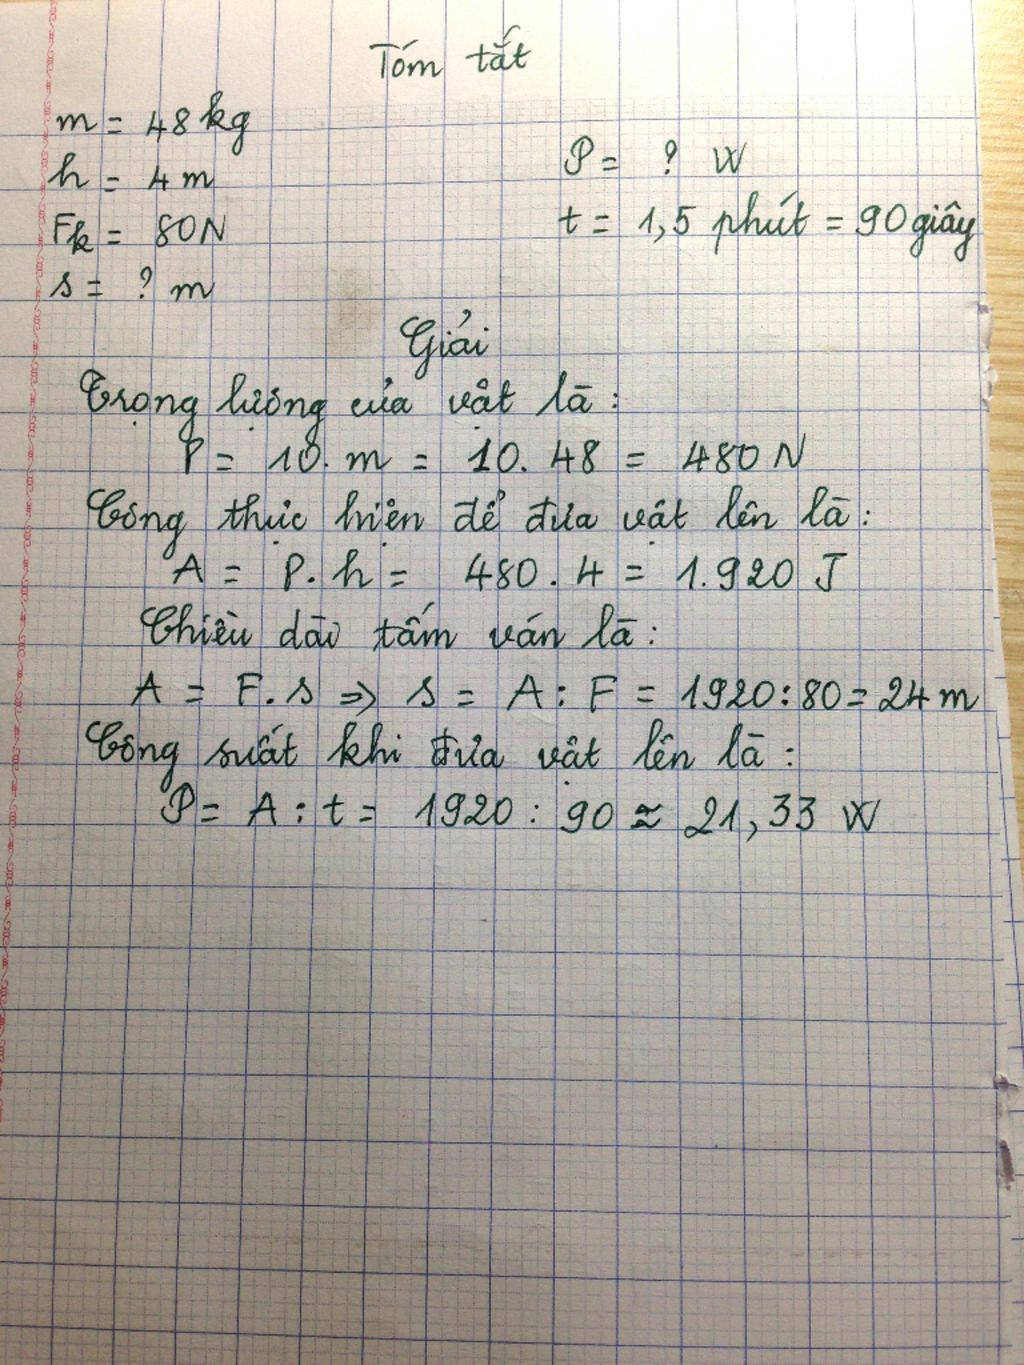 Tóm tắt
m = 48 kg
h = 4 m
Fk = 80N
s = ? m
P = ? W
t = 1,5 phút = 90 giây
Giải
Trọng lượng của vật là:
P = 10. m = 10. 48 = 480 N
Công thực hiện để đưa vật lên là:
A = P. h = 480. 4 = 1.920 J
Chiều dài tấm ván là:
A = F. s => s = A: F = 1920: 80 = 24 m
Công suất khi đưa vật lên là:
P = A : t = 1920 : 90 ≈ 21,33 W